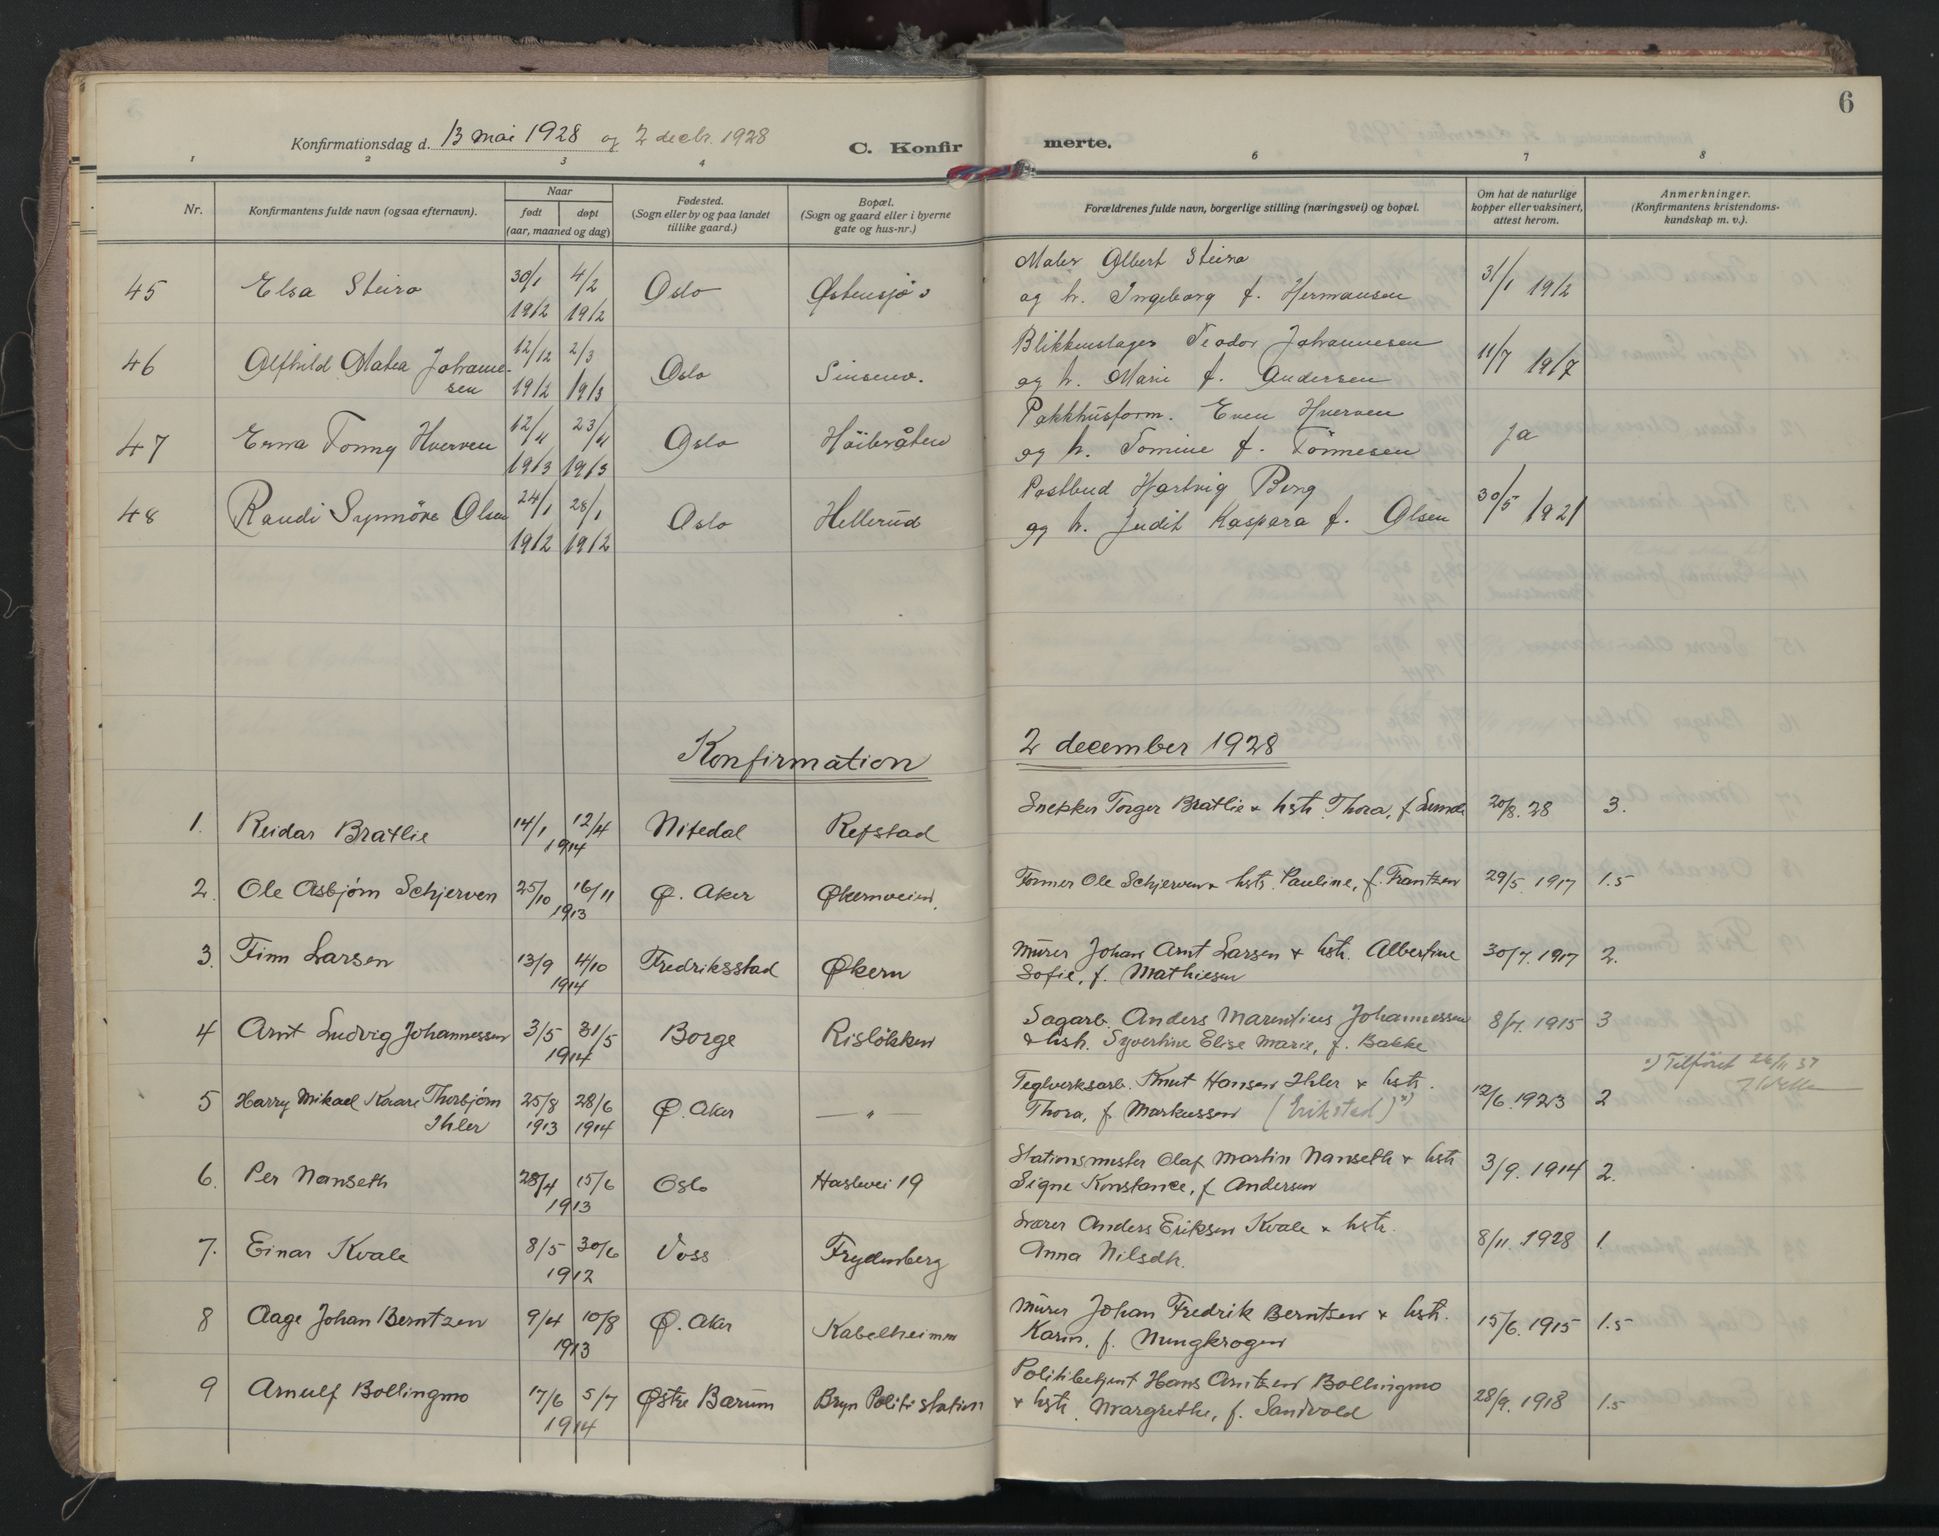 6
Konfirmationsdag d. 13 mai 1928 og 2 decbr. 1928
C. Konfirmerte.
1 2 3 4 6 7 8
Nr.
Konfirmantens fulde navn (ogsaa efternavn).
Naar
født døpt
(aar, maaned og dag)
Fødested.
(Sogn eller by og paa landet
tillike gaard.)
Bopæl.
(Sogn og gaard eller i byerne
gate og hus-nr.)
Forældrenes fulde navn, borgerlige stilling (næringsvei) og bopæl.
Om hat de naturlige
kopper eller vaksinert,
attest herom.
Anmerkninger.
(Konfirmantens kristendoms-
kundskap m. v.).
45 Elsa Steiro 30/1 1912 4/2 1912 Oslo Østensjø
Maler Albert Steiro
og h. Ingeborg f. Hermansen 31/1 1912
46 Alfhild Matea Johanne-
sen 12/12 1912 2/3 1913 Oslo Sinsenv.
Blikkenslager Teodor Johannesen
og h. Marie f. Andersen 11/7 1917
47 Erna Tonny Hverven 12/4 1913 23/4 1913 Oslo Høibråten
Pakkhusform. Even Hverven
og h. Tomine f. Tønnesen ja
48 Randi Synnöve Olsen 24/1 1912 28/1 1912 Oslo Hellerud
Postbud Hartvig Berg
og h. Judit Kaspara f. Olsen 30/5 1921
Konfirmation 2 december 1928
1. Reidar Bratlie 14/1 12/4 1914 Nitedal Refstad Snekker Torger Bratlie + hstr. Thora, f. Lunde 20/8. 28 3.
2. Ole Asbjørn Schjerven 25/10 16/11 1913 Ø. Aker Økernveien. Former Ole Schjerven + hstr. Pauline, f. Frantzen 29/5. 1917 1.5
3. Finn Larsen 13/9 4/10 1914 Fredriksstad Økern Murer Johan Arnt Larsen + hstr. Albertine
Sofie, f. Mathiesen 30/7. 1917 2.
4 Arnt Ludvig Johannessen 3/5 31/5 1914 Borge Risløkken Sagarb. Anders Marentius Johannessen
+ hstr. Syvertine Elise Marie, f. Bakke 8/7. 1915 3
5 Harry Mikael Kaare Thorbjørn
Ihler 25/8 1913 28/6 1914 Ø. Aker — " — Teglverksarb. Knut Hansen Ihler + hstr.
Thora, f. Markussen (Erikstad) *) 12/6. 1923 2
*) Tilføiet 26/11 37
6. Per Nanseth 28/4 15/6 1913 Oslo Haslevei 19 Stationsmester Olaf Martin Nanseth + hstr
Signe Konstance, f. Andersen 3/9. 1914 2.
7. Einar Kvale 8/5 30/6 1912 Voss Frydenberg Lærer Anders Eriksen Kvale + hstr.
Anna Nilsdtr. 8/11. 1928 1.
8 Aage Johan Berntzen 9/4 10/8 1913 Ø. Aker Kabelheimen Murer Johan Fredrik Berntsen + hstr.
Karin, f. Nungkrogen 15/6. 1915 1.5
9 Arnulf Bollingmo 17/6 5/7 1914 Østre Bærum Bryn Politistation Politibetjent Hans Arntzen Bollingmo
+ hstr. Margrethe, f. Sandvold 28/9. 1918 1.5